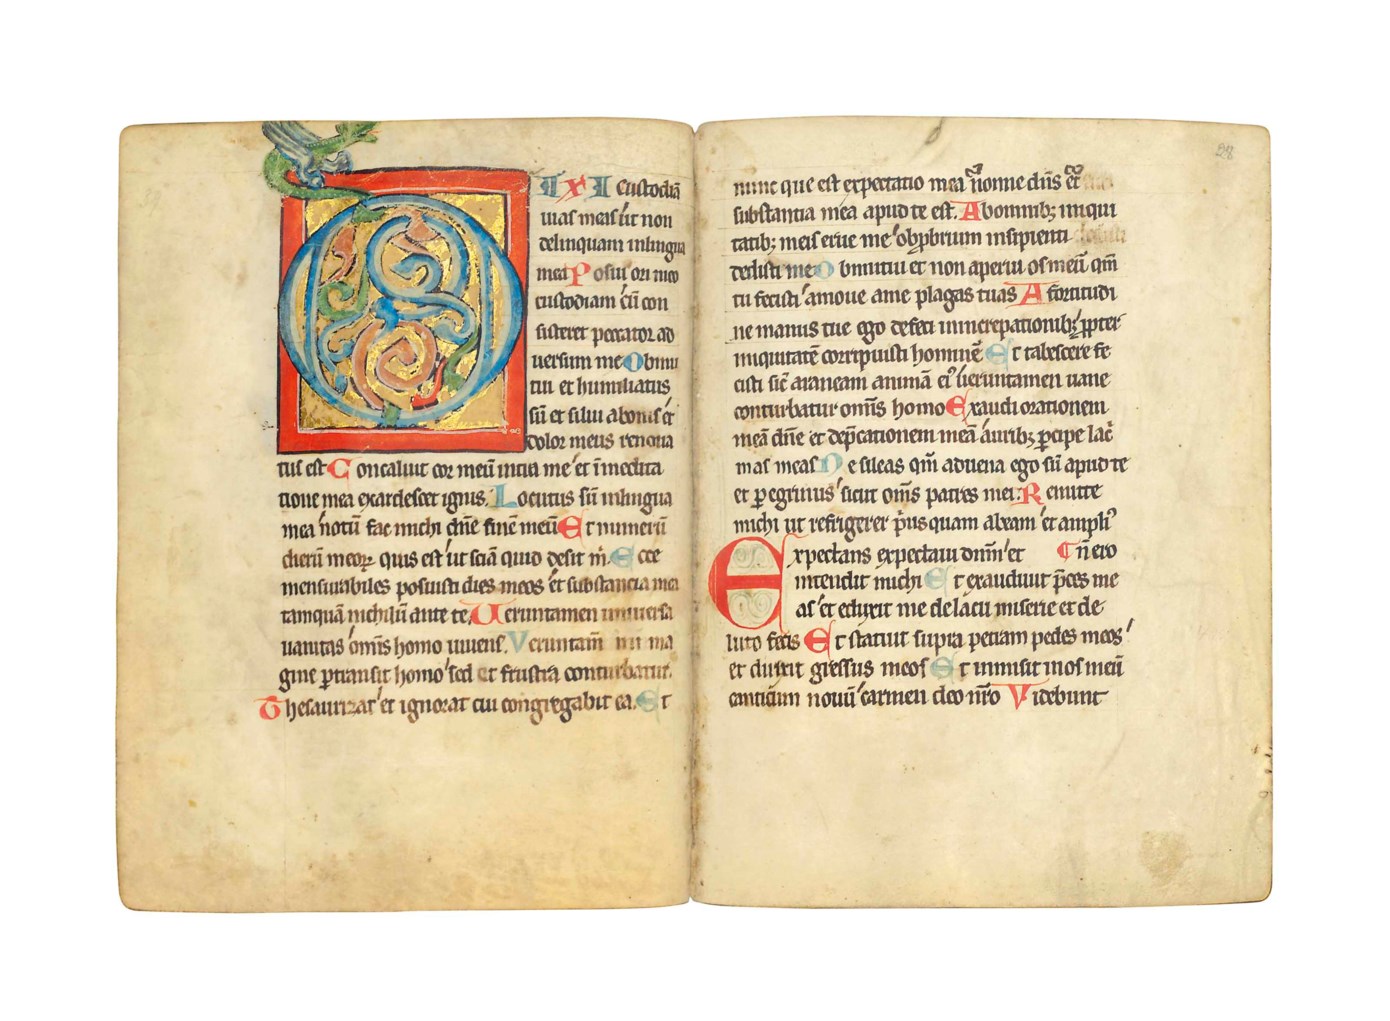 DIXI custodiā
uias meas ut non
delinquam in lingua
mea Posui ori meo
custodiam cū con
sisteret peccator ad
uersum me Obmu
tui et humiliatus
sū et silui a bonis et
dolor meus renoua
tus est Concaluit cor meū intra me et in medita
tione mea exardescet ignis. Locutus sū in lingua
mea notū fac michi dn̄e finē meū Et numerū
dierū meoꝝ quis est ut sciā quid desit m̄. Ecce
mensurabiles posuisti dies meos et substancia mea
tamquā nichilū ante te. Ueruntamen uniuersa
uanitas om̄s homo uiuens. Veruntam̄ in ima
gine ꝑtransit homo sed et frustra conturbatur.
Thesaurizat et ignorat cui congregabit ea. Et
28
nunc que est expectatio mea nonne dn̄s et
substantia mea apud te est. Ab omnibꝫ iniqui
tatibꝫ meis erue me obprobrium insipienti
dedisti me Obmutui et non aperui os meū qm̄
tu fecisti amoue a me plagas tuas A fortitudi
ne manus tue ego defeci in increpationibꝫ ꝓpter
iniquitatē corripuisti hominē Et tabescere fe
cisti sic̄ araneam animā eiꝰ ueruntamen uane
conturbatur om̄s homo Exaudi orationem
meā dn̄e et dep̄cationem meā auribꝫ ꝑcipe lac̄
mas meas Ne sileas qm̄ aduena ego sū apud te
et ꝑegrinus sicut om̄s patres mei. Remitte
michi ut refrigerer p̄us quam abeam et ampliꝰ
Expectans expectaui dn̄m et n̄ ero
intendit michi Et exaudiuit p̄ces me
as et eduxit me de lacu miserie et de
luto fecis Et statuit supra petram pedes meos
et direxit gressus meos Et inmisit in os meū
canticum nouū carmen deo nr̄o Videbunt